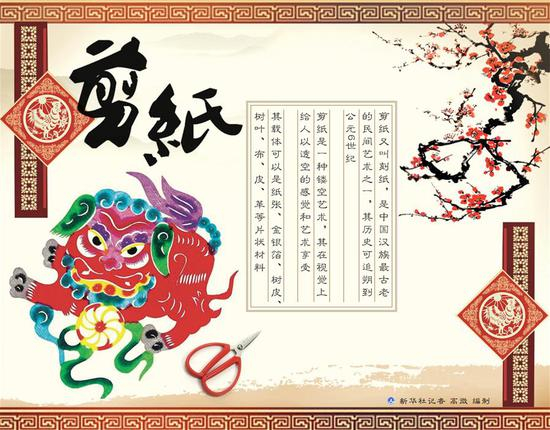 剪紙
剪纸又叫刻纸，是中国汉族最古老
的民间艺术之一，其历史可追朔到
公元6世纪
剪纸是一种镂空艺术，其在视觉上
给人以透空的感觉和艺术享受
其载体可以是纸张、金银箔、树皮、
树叶、布、皮、革等片状材料
新华社记者 高微 编制